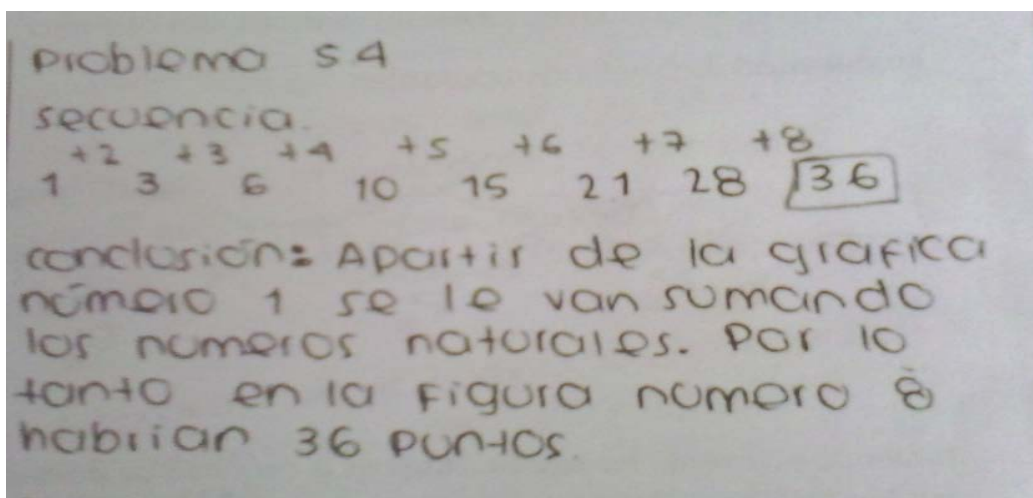 Problema 54
secuencia.
+2 +3 +4 +5 +6 +7 +8
1 3 6 10 15 21 28 36
conclusión: Apartir de la grafica
número 1 se le van sumando
los numeros naturales. Por lo
tanto en la Figura numero 8
habrian 36 puntos.